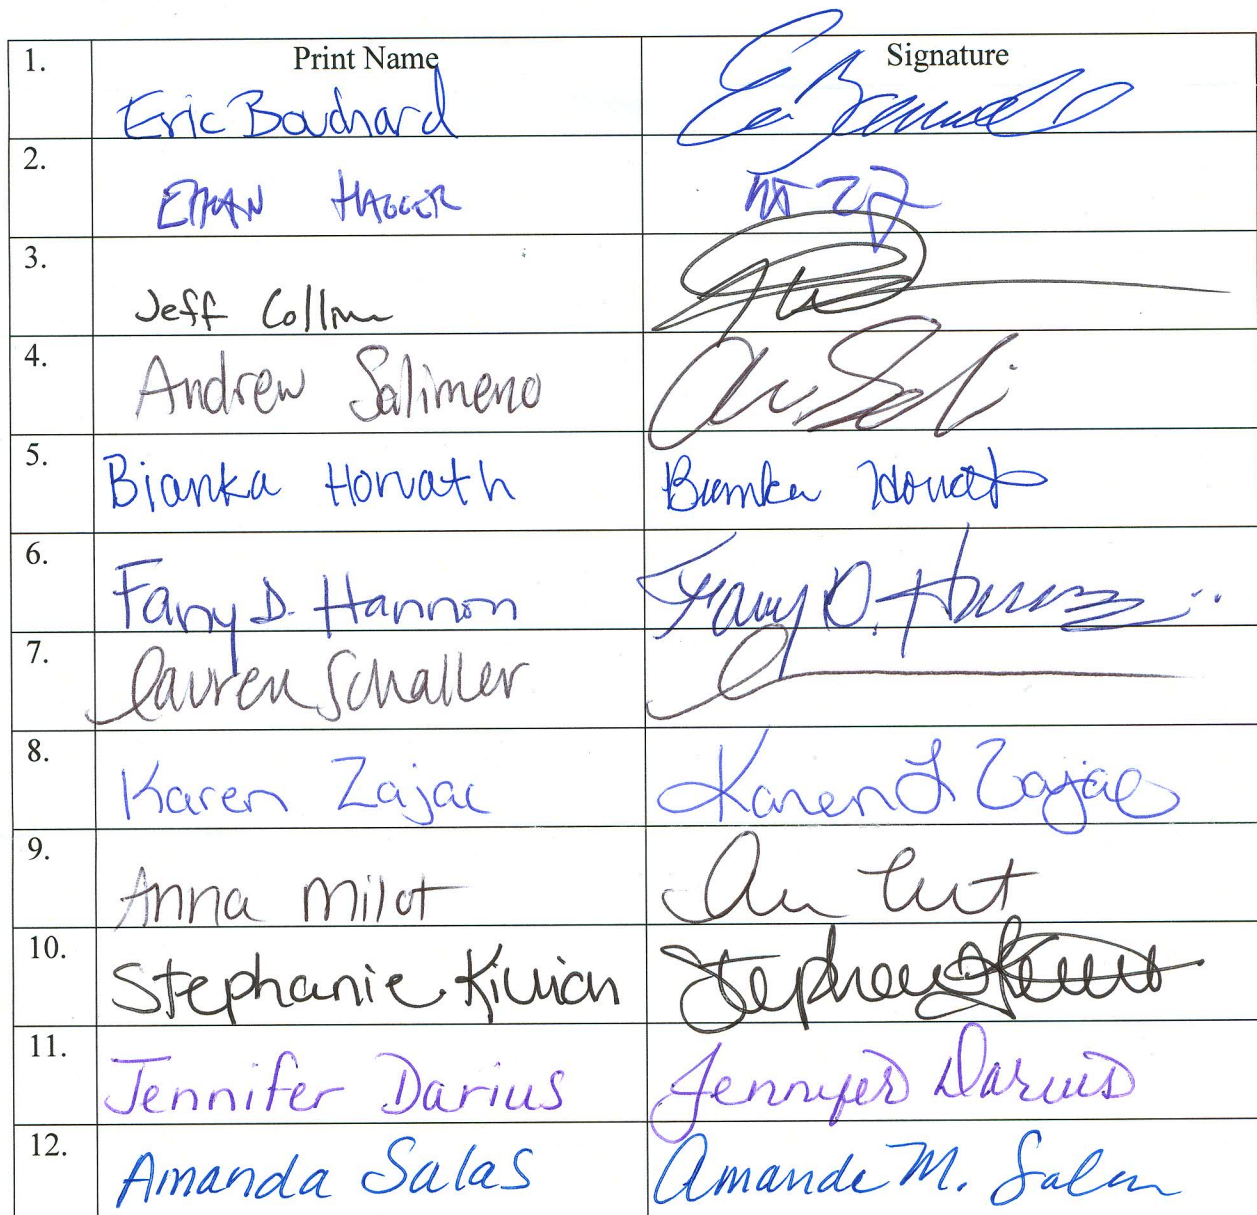 1. Print Name Signature
Eric Bouchard
2.
Ethan
3.
Jeff
4.
Andrew Salimeno
5.
Bianka Horvath Bianka Horvath
6.
Fany D. Hannon Fany D.
7.
Lauren Schaller
8.
Karen Zajac Karen L Zajac
9.
Anna Milot
10.
Stephanie
11.
Jennifer Darius Jennifer Darius
12.
Amanda Salas Amanda M. Salas